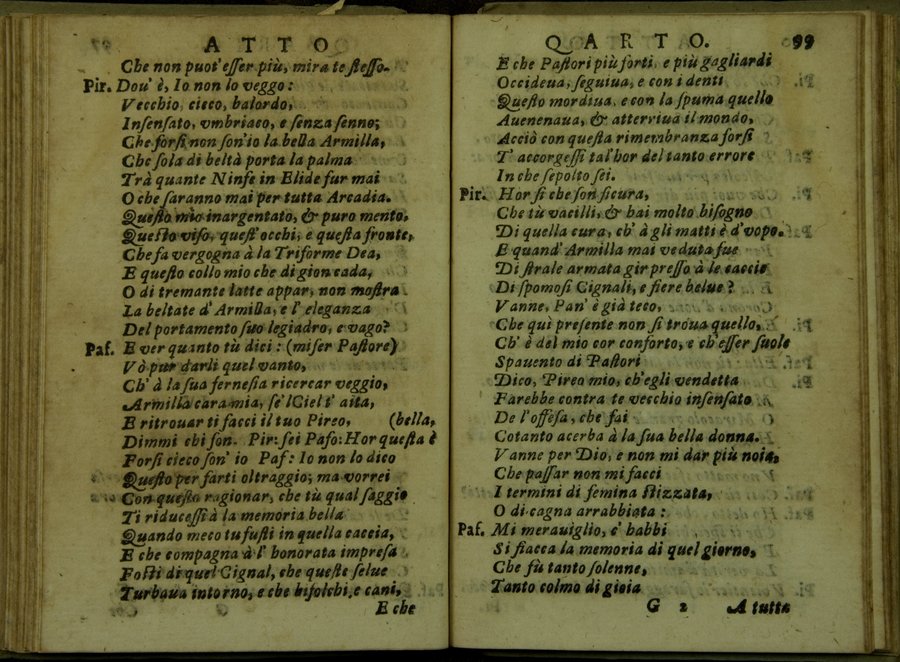 ATTO
Che non puot'eſſer più, mira te ſteſſo.
Pir. Dou' è, Io non lo veggo:
Vecchio, cieco, balordo,
Inſenſato, vmbriaco, e ſenza ſenno;
Che forſi non ſon'io la bella Armilla,
Che ſola di beltà porta la palma
Trà quante Ninfe in Elide fur mai
O che ſaranno mai per tutta Arcadia.
Queſto mio inargentato, & puro mento.
Queſto viſo, queſt'occhi, e queſta fronte,
Che fa vergogna à la Triforme Dea,
E queſto collo mio che di gioncada,
O di tremante latte appar, non moſtra
La beltate d'Armilla, e l'eleganza
Del portamento ſuo legiadro, e vago?
Paſ. E ver quanto tù dici: (miſer Paſtore)
Vò pur darli quel vanto,
Ch' à la ſua ferneſia ricercar veggio,
Armilla cara mia, ſe'l Ciel t'aita,
E ritrouar ti facci il tuo Pireo, (bella,
Dimmi chi ſon. Pir: ſei Paſo: Hor queſta è
Forſi cieco ſon' io Paſ: Io non lo dico
Queſto per farti oltraggio; ma vorrei
Con queſto ragionar, che tù qual ſaggio
Ti riduceſſi à la memoria bella
Quando meco tu fuſti in quella caccia,
E che compagna à l'honorata impreſa
Foſti di quel Cignal, che queſte ſelue
Turbaua intorno, e che biſolchi, e cani,
E che
QARTO. 99
E che Paſtori più forti, e più gagliardi
Occideua, ſeguiua, e con i denti
Queſto mordiua, e con la ſpuma quello
Auenenaua, & atterriua il mondo,
Acciò con queſta rimembranza forſi
T' accorgeſſi tal'hor del tanto errore
In che ſepolto ſei.
Pir. Hor ſi che ſon ſicura,
Che tù vacilli, & hai molto biſogno
Di quella cura, ch' à gli matti è d'vopo.
E quand'Armilla mai veduta fue
Di ſtrale armata gir preſſo à le caccie
Di ſpomoſi Cignali, e fiere belue?
Vanne, Pan' è già teco,
Che quì preſente non ſi troua quello,
Ch' è del mio cor conforto, e ch'eſſer ſuole
Spauento di Paſtori
Dico, Pireo mio, ch'egli vendetta
Farebbe contra te vecchio inſenſato
De l'offeſa, che fai
Cotanto acerba à la ſua bella donna.
Vanne per Dio, e non mi dar più noia,
Che paſſar non mi facci
I termini di femina ſtizzata,
O di cagna arrabbiata:
Paſ. Mi merauiglio, c' habbi
Si fiacca la memoria di quel giorno,
Che fù tanto ſolenne,
Tanto colmo di gioia
G 2 A tutta